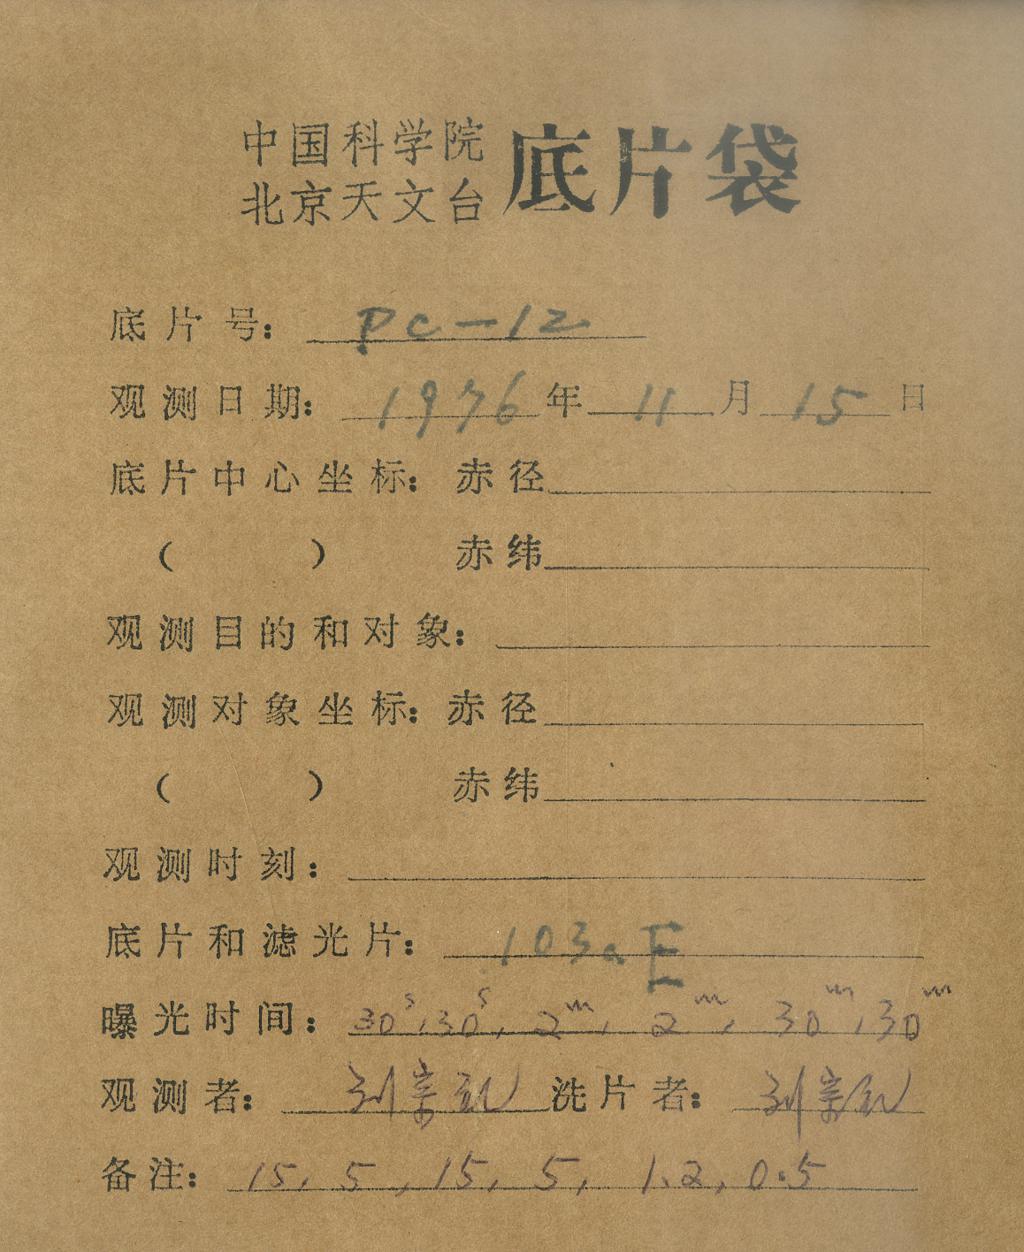 中国科学院
北京天文台 底片袋
底片号: PC-12
观测日期: 1976年 11月 15日
底片中心坐标: 赤径
( ) 赤纬
观测目的和对象:
观测对象坐标: 赤径
( ) 赤纬
观测时刻:
底片和滤光片: 103aE
曝光时间: 30s, 30s, 2m, 2m, 30m, 30m
观测者: 刘宗 洗片者: 刘宗
备注: 15, 5, 15, 5, 1.2, 0.5